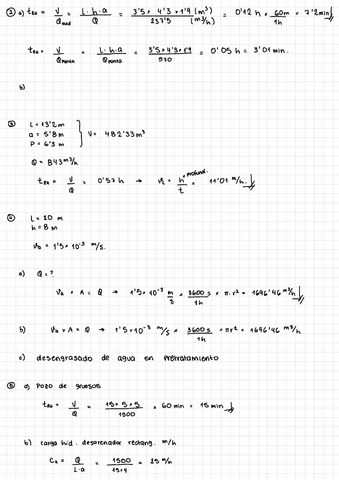 ② a) tRH = V / Qmed = L · h · a / Q = 3'5 × 4'3 × 1'9 (m³) / 237'5 (m³/h) = 0'12 h × 60m / 1h = 7'2 min
tRH = V / Qpunta = L · h · a / Qpunta = 3'5 × 4'3 × 1'9 / 570 = 0'05 h = 3'01 min.
b)
③ L = 13'2 m
a = 5'8 m
P = 6'3 m
V = 482'33 m³
Q = 843 m³/h
tRH = V / Q = 0'57 h → VL = h profund. / t = 11'01 m/h.
④ L = 20 m
h = 8 m
VA = 1'5 × 10⁻³ m/s.
a) Q = ?
VA × A = Q → 1'5 × 10⁻³ m/s × 3600 s / 1h × π · r² = 1696'46 m³/h
b) VA × A = Q → 1'5 × 10⁻³ m/s × 3600 s / 1h × π r² = 1696'46 m³/h
c) desengrasado de agua en pretratamiento
⑤ a) POZO de gruesos
tRH = V / Q = 15 × 5 × 5 / 1500 × 60 min = 15 min
b) carga hid. desarenador rectang. m/h
CH = Q / L·a = 1500 / 15×4 = 25 m/h